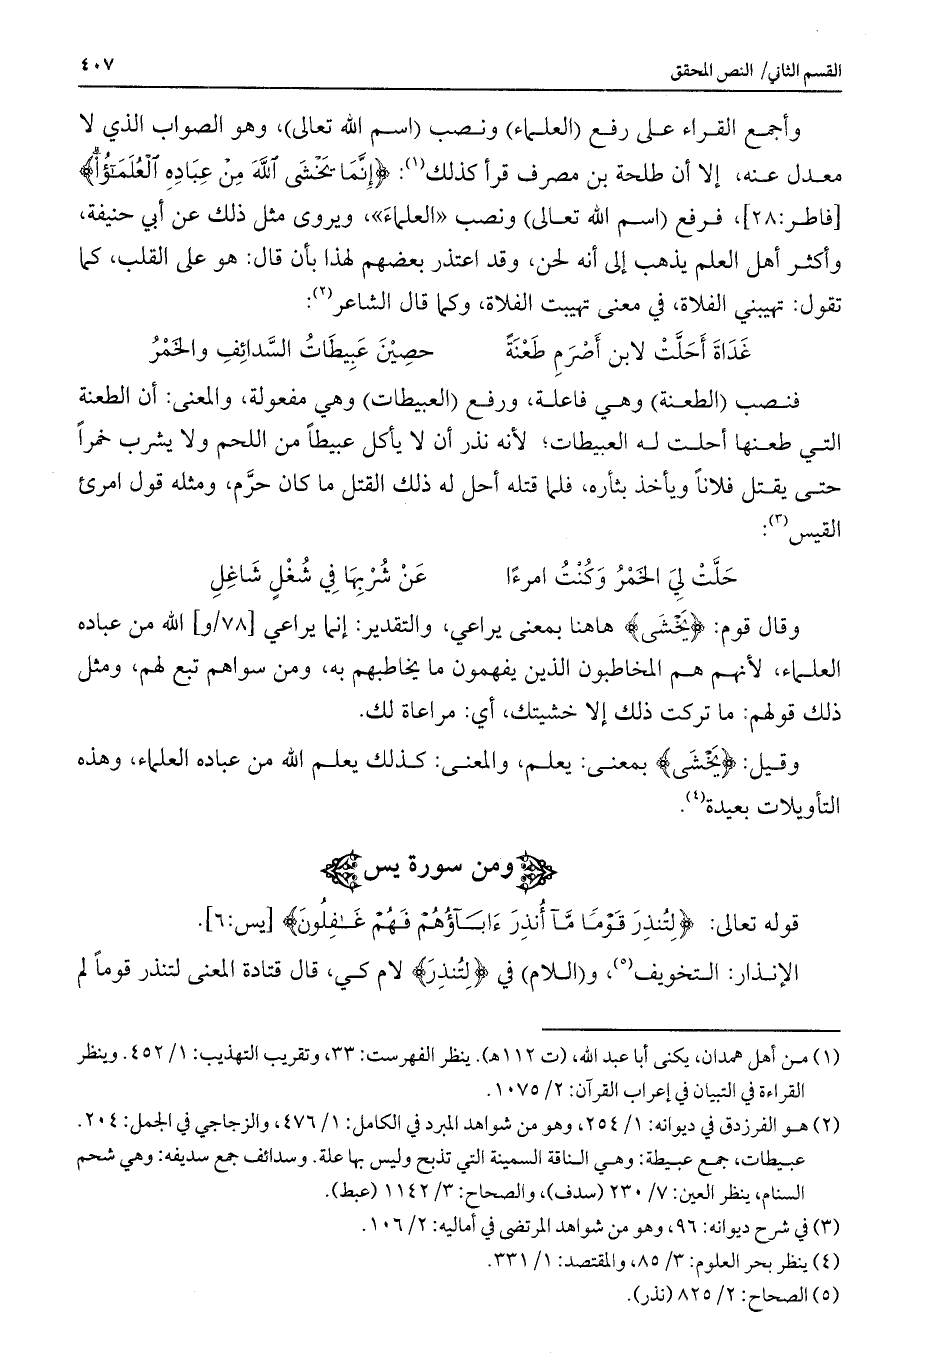 القسم الثاني/ النص المحقق ٤٠٧
وأجمع القراء على رفع (العلماء) ونصب (اسم الله تعالى)، وهو الصواب الذي لا
معدل عنه، إلا أن طلحة بن مصرف قرأ كذلك(١): ﴿إِنَّمَا يَخْشَى ٱللَّهَ مِنْ عِبَادِهِ ٱلْعُلَمَٰٓؤُا۟﴾
[فاطر:٢٨]، فرفع (اسم الله تعالى) ونصب «العلماءَ»، ويروى مثل ذلك عن أبي حنيفة،
وأكثر أهل العلم يذهب إلى أنه لحن، وقد اعتذر بعضهم لهذا بأن قال: هو على القلب، كما
تقول: تهيبني الفلاة، في معنى تهيبت الفلاة، وكما قال الشاعر(٢):
غَدَاةَ أَحَلَّتْ لابن أَصْرَمِ طَعْنَةً حصِيْنَ عَبِيطَاتُ السَّدائِفِ والخَمْرُ
فنصب (الطعنة) وهي فاعلة، ورفع (العبيطات) وهي مفعولة، والمعنى: أن الطعنة
التي طعنها أحلت له العبيطات؛ لأنه نذر أن لا يأكل عبيطاً من اللحم ولا يشرب خمراً
حتى يقتل فلاناً ويأخذ بثأره، فلما قتله أحل له ذلك القتل ما كان حرَّم، ومثله قول امرئ
القيس(٣):
حَلَّتْ لِيَ الخَمْرُ وَكُنْتُ امرءًا عَنْ شُرْبِهَا فِي شُغْلٍ شَاغِلِ
وقال قوم: ﴿يَخْشَى﴾ هاهنا بمعنى يراعي، والتقدير: إنما يراعي [٧٨/و] الله من عباده
العلماء، لأنهم هم المخاطبون الذين يفهمون ما يخاطبهم به، ومن سواهم تبع لهم، ومثل
ذلك قولهم: ما تركت ذلك إلا خشيتك، أي: مراعاة لك.
وقيل: ﴿يَخْشَى﴾ بمعنى: يعلم، والمعنى: كذلك يعلم الله من عباده العلماء، وهذه
التأويلات بعيدة(٤).
ومن سورة يس
قوله تعالى: ﴿لِتُنذِرَ قَوْمًا مَّآ أُنذِرَ ءَابَآؤُهُمْ فَهُمْ غَٰفِلُونَ﴾ [يس:٦].
الإنذار: التخويف(٥)، و(اللام) في ﴿لِتُنذِرَ﴾ لام كي، قال قتادة المعنى لتنذر قوماً لم
(١) من أهل همدان، يكنى أبا عبد الله، (ت ١١٢هـ). ينظر الفهرست: ٣٣، وتقريب التهذيب: ١/ ٤٥٢. وينظر
القراءة في التبيان في إعراب القرآن: ٢/ ١٠٧٥.
(٢) هو الفرزدق في ديوانه: ١/ ٢٥٤، وهو من شواهد المبرد في الكامل: ١/ ٤٧٦، والزجاجي في الجمل: ٢٠٤.
عبيطات، جمع عبيطة: وهي الناقة السمينة التي تذبح وليس بها علة. وسدائف جمع سديفه: وهي شحم
السنام، ينظر العين: ٧/ ٢٣٠ (سدف)، والصحاح: ٣/ ١١٤٢ (عبط).
(٣) في شرح ديوانه: ٩٦، وهو من شواهد المرتضى في أماليه: ٢/ ١٠٦.
(٤) ينظر بحر العلوم: ٣/ ٨٥، والمقتصد: ١/ ٣٣١.
(٥) الصحاح: ٢/ ٨٢٥ (نذر).